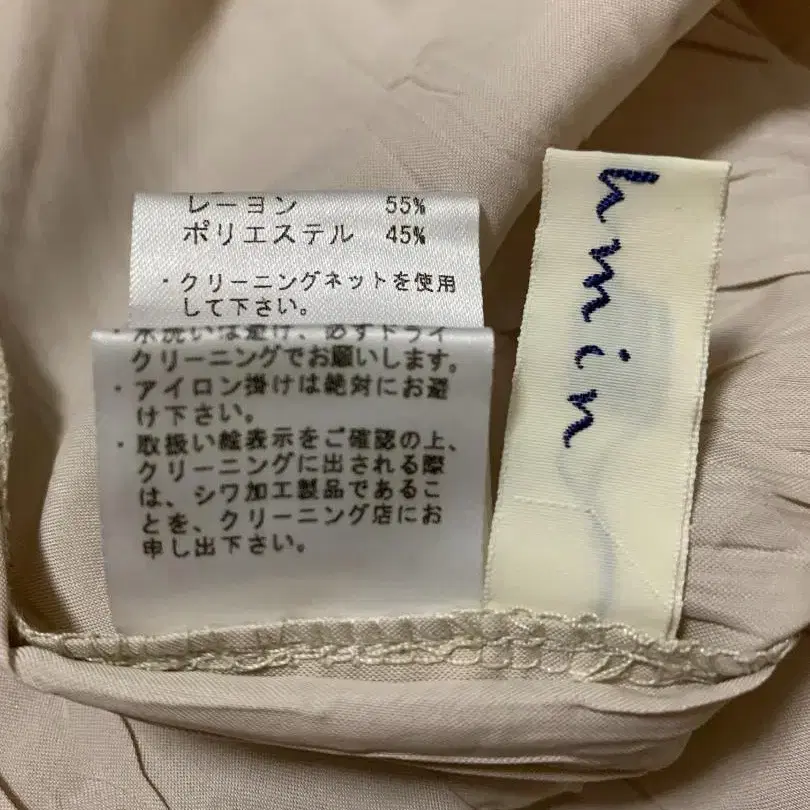 レーヨン 55%
ポリエステル 45%
・クリーニングネットを使用
して下さい。
・水洗いは避け、必ずドライ
クリーニングでお願いします。
・アイロン掛けは絶対にお避
け下さい。
・取扱い絵表示をご確認の上、
クリーニングに出される際
は、シワ加工製品であるこ
とを、クリーニング店にお
申し出下さい。
hmin